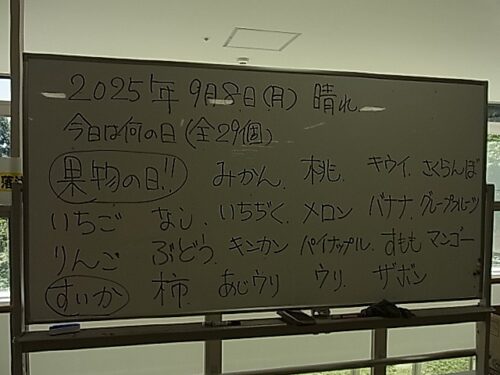 2025年 9月8日(月) 晴れ
今日は何の日(全29個)
果物の日!! みかん. 桃. キウイ. さくらんぼ
いちご なし. いちぢく. メロン バナナ. グレープフルーツ
りんご ぶどう. キンカン パイナップル. すもも マンゴー
すいか 柿. あじウリ ウリ ザボン